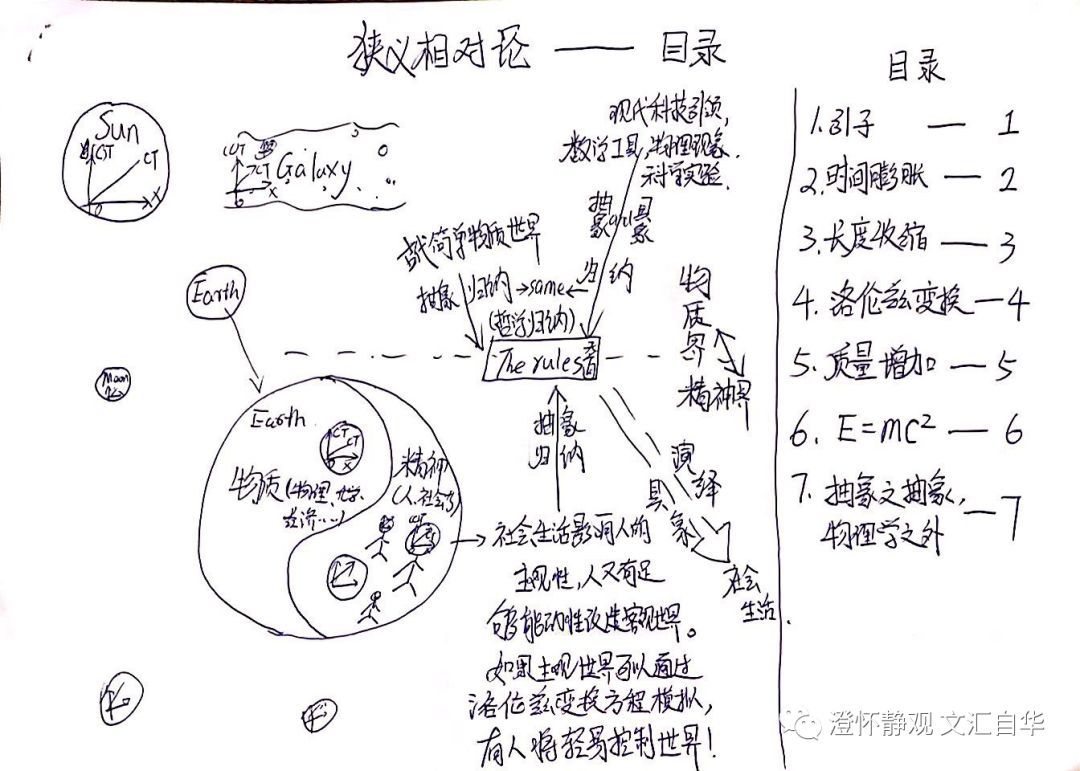 狭义相对论 —— 目录
Sun
CT
CT
X
O
CT
CT
X
Galaxy
现代科技引领,
数学工具,物理现象.
科学实验.
抽象 and 具象
归纳
简单物质世界
抽象 归纳 →same←
(哲学归纳)
The rules
物质界
精神界
Earth
Moon
Earth
CT
CT
X
物质(物理、化学、
经济……)
精神
(人、社会等)
抽象
归纳
演绎
具象
社会
生活.
→社会生活影响人的
主观性,人又有足
够能动性改造客观世界。
如果主观世界可以通过
洛伦兹变换方程模拟,
有人将轻易控制世界!
目录
1.引子 — 1
2.时间膨胀 — 2
3.长度收缩 — 3
4.洛伦兹变换 — 4
5.质量增加 — 5
6. E=mc² — 6
7.抽象之抽象,
物理学之外 — 7
澄怀静观 文汇自华